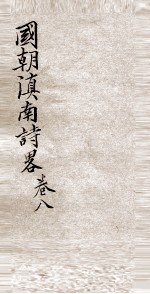 國朝滇南詩畧卷八